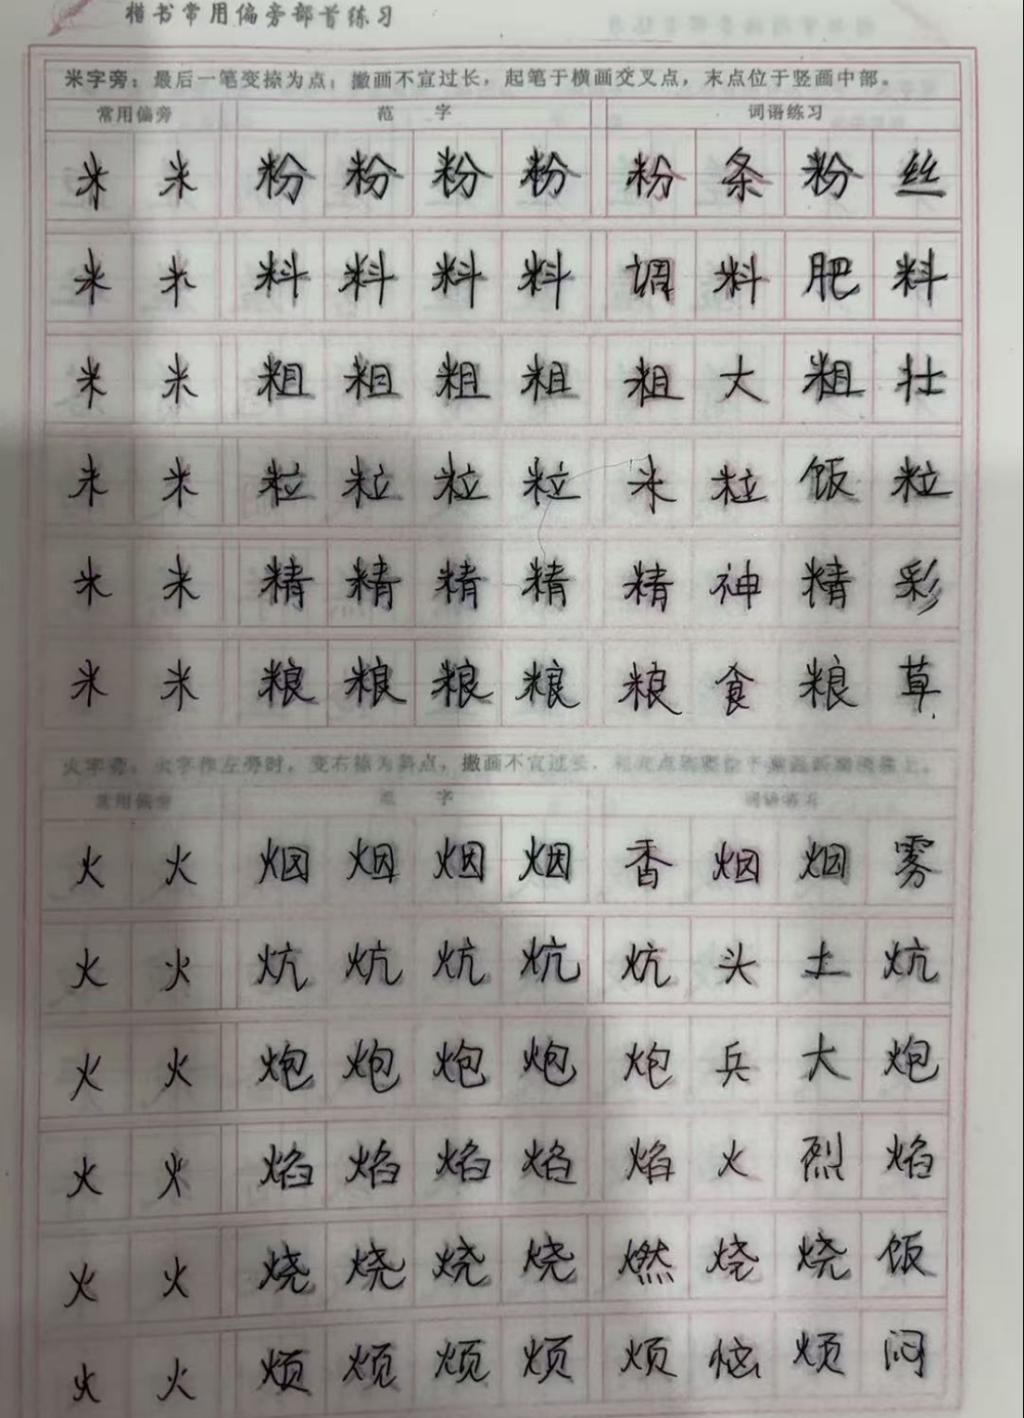 楷书常用偏旁部首练习
米字旁：最后一笔变捺为点；撇画不宜过长，起笔于横画交叉点，末点位于竖画中部。
常用偏旁 范字 词语练习
米 米 粉 粉 粉 粉 粉 条 粉 丝
米 米 料 料 料 料 调 料 肥 料
米 米 粗 粗 粗 粗 粗 大 粗 壮
米 米 粒 粒 粒 粒 米 粒 饭 粒
米 米 精 精 精 精 精 神 精 彩
米 米 粮 粮 粮 粮 粮 食 粮 草
火字旁：火字作左旁时，变右捺为斜点，撇画不宜过长，
常用偏旁 范字 词语练习
火 火 烟 烟 烟 烟 香 烟 烟 雾
火 火 炕 炕 炕 炕 炕 头 土 炕
火 火 炮 炮 炮 炮 炮 兵 大 炮
火 火 焰 焰 焰 焰 焰 火 烈 焰
火 火 烧 烧 烧 烧 燃 烧 烧 饭
火 火 烦 烦 烦 烦 烦 恼 烦 闷